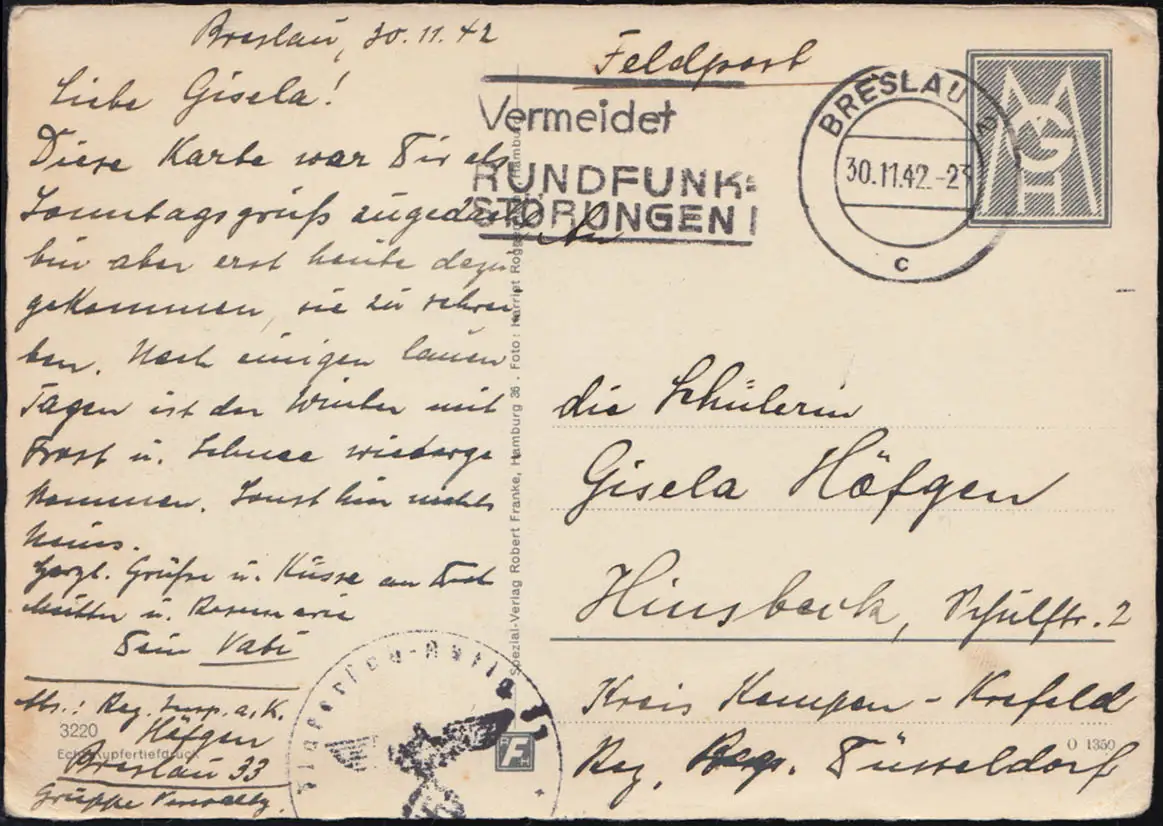 Breslau, 30.11.42
Liebe Gisela!
Diese Karte war Dir als
Sonntagsgruß zugedacht
bin aber erst heute dazu
gekommen, sie zu schrei
ben. Nach einigen lauen
Tagen ist der Winter mit
Frost u. Schnee wiederge
kommen. Sonst hier nichts
Neues.
Herzl. Grüße u. Küsse an Dich
Mutter u. Rosemarie
Dein Vati
Abs.: Reg. Insp. a. K.
Höfgen
Breslau 33
Gruppe
3220
Echt Kupfertiefdruck
Spezial-Verlag Robert Franke, Hamburg 36 . Foto: Harriet
Hamburg
Feldpost
Vermeidet
RUNDFUNK=
STÖRUNGEN!
BRESLAU
30.11.42.-23
c
MGH
An
die Schülerin
Gisela Höfgen
Hinsbeck, Schulstr. 2
Kreis Kempen-Krefeld
Reg. Düsseldorf
O 1350